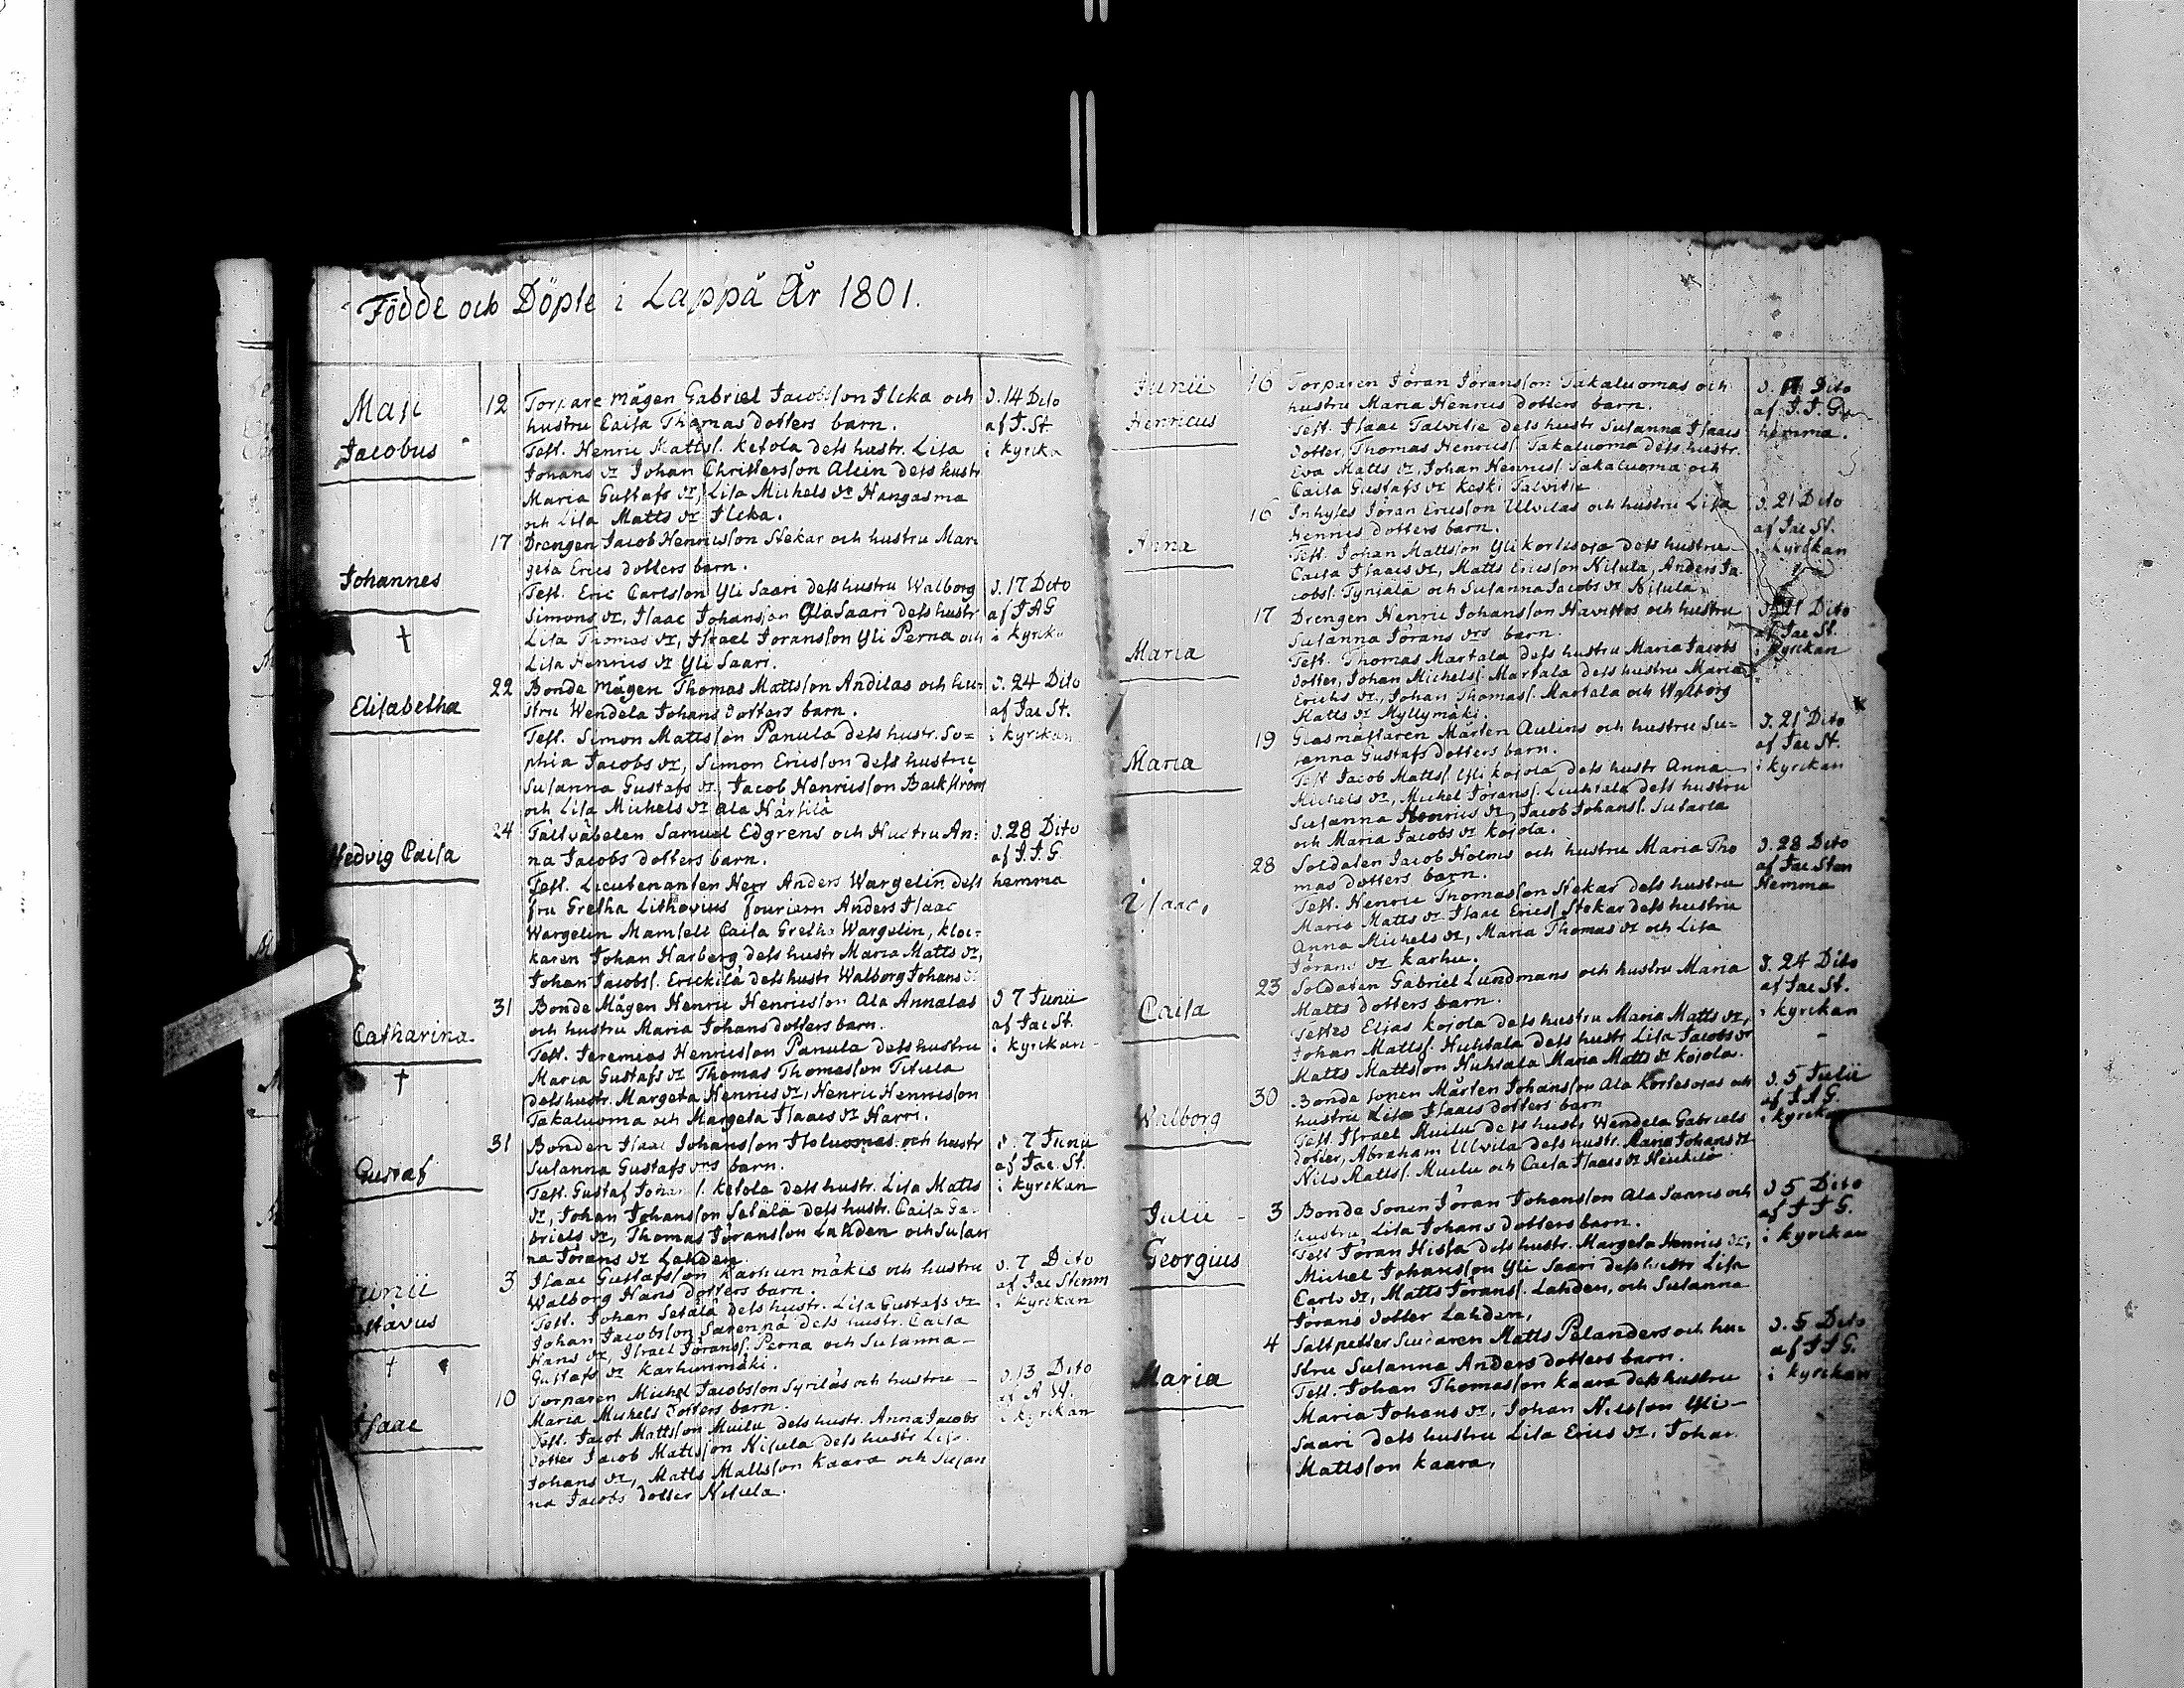 Födde och Döpte i Lappå År 1801.
Maji 12 Torpare Mågen Gabriel Jacobsson Ilcka och d. 14 Dito
Jacobus hustru Caisa Thomas dotters barn. af J. St.
Test. Henric Mattss. Ketola dess hustr. Lisa i kyrka
Johans dr Johan Christersson Alein dess hustr
Maria Gustafs dr, Lisa Michels dr Hangasma
och Lisa Matts dr Ilcka.
17 Drengen Jacob Henricsson Stekar och hustru Mar-
geta Erics dotters barn.
Johannes Test. Eric Carlsson Yli Saari dess hustru Walborg d. 17 Dito
Simons dr, Isaac Johansson AlaSaari dess hustr af J A G
† Lisa Thomas dr, Israel Joransson Yli Perna och i kyrka
Lisa Henrics dr Yli Saari.
22 Bonde Mågen Thomas Mattsson Andilas och hu- d. 24 Dito
Elisabetha stru Wendela Johans dotters barn. af Jac St.
Test. Simon Mattsson Panula dess hustr. So= i kyrkan
phia Jacobs dr, Simon Ericsson dess hustru
Susanna Gustafs dr, Jacob Henricsson Backström
och Lisa Michels dr Ala Härsilä
24 Fältväbelen Samuel Edgrens och Hustru An: d. 28 Dito
Hedvig Caisa na Jacobs dotters barn. af J. J. G
Test. Lieutenanten Herr Anders Wargelin dess hemma
fru Gretha Lithovius fouriern Anders Isaac
Wargelin Mamsell Caisa Gretha Wargelin, kloc-
karen Johan Harberg dess hustr Maria Matts dr,
Johan Jacobss. Erickilä dess hustr Walborg Johans d:
31 Bonde Mågen Henric Henricsson Ala Annalas d 7 Junii
och hustru Maria Johans dotters barn. af Jac St.
Catharina Test. Jeremias Henricsson Panula dess hustru i kyrkan
† Maria Gustafs dr Thomas Thomasson Titula
dess hustr. Margeta Henrics dr, Henric Henricsson
Takaluoma och Margeta Isaacs dr Harri.
31 Bonden Isaac Johansson Iloluomas och hustr d. 7 Junii
Gustaf Susanna Gustafs drs barn. af Jac. St.
Test. Gustaf Johans s. Ketola dess hustr. Lisa Matts i kyrkan
dr, Johan Johansson Setälä dess hustr. Caisa Ga-
briels dr, Thomas Joransson Lahden och Susan
na Jörans dr Lahden.
Junii 3 Isaac Gustafsson Karhun mäkis och hustru d. 7 Dito
Walborg Hans dotters barn. af Jac Stenm
Test. Johan Setälä dess hustr. Lisa Gustafs dr i kyrkan
Johan Jacobsson Sarenpä dess hustr. Caisa
† Hans dr, Israel Jöranss. Perna och Susanna
Gustafs dr Karhunmäki.
10 Torparen Michel Jacobsson Syriläs och hustru d. 13 Dito
Isaac Maria Michels dotters barn. af A W.
Test. Jacob Mattsson Muilu dess hustr. Anna Jacobs i kyrkan
dotter Jacob Mattsson Nisula dess hustr Lisa
Johans dr, Matts Mattsson Kaara och Susan
na Jacobs dotter Nisula.
Junii 16 Torparen Jöran Jöransson Takaluomas och d. 17 Dito
Henricus hustru Maria Henrics dotters barn. af J. J. G
Test. Isaac Talvitie dess hustr Susanna Isaacs hemma.
dotter, Thomas Henricss. Takaluoma dess hustr.
Eva Matts dr, Johan Henricss. Takaluoma och
Caisa Gustafs dr Keski Talvitie
16 Inhyses Jöran Ericsson Ulvilas och hustru Lisa d. 21 Dito
Anna Henrics dotters barn. af Jac St.
Test. Johan Mattsson Yli kortesoja dess hustru i kyrkan
Caisa Isaacs dr, Matts Ericsson Nisula, Anders Ja-
cobss. Tyniälä och Susanna Jacobs dr Nisula
17 Drengen Henric Johansson Havistos och hustru d. 21 Dito
Susanna Jörans drs barn. af Jac St.
Maria Test. Thomas Martala dess hustru Maria Jacobs i kyrkan
dotter, Johan Michelss. Martala dess hustru Maria
Erichs dr, Johan Thomass. Martala och Walborg
Matts dr Myllymäki.
19 Glasmästaren Mårten Aulins och hustru Su= d. 21 Dito
Maria sanna Gustafs dotters barn. af Jac St.
Test Jacob Mattss. Yli kojola dess hustr Anna i kyrkan
Michels dr, Michel Jöranss. Luhtala dess hustru
Susanna Henrics dr, Jacob Johanss. Sutaria
och Maria Jacobs dr kojola.
28 Soldaten Jacob Holms och hustru Maria Tho d. 28 Dito
mas dotters barn. af Jac Sten
Isaac, Test. Henric Thomasson Stekar dess hustru Hemma
Maria Matts dr Isaac Ericss Stekar dess hustru
Anna Michels dr, Maria Thomas dr och Lisa
Jörans dr Karhu.
23 Soldaten Gabriel Lundmans och hustru Maria d. 24 Dito
Caisa Matts dotters barn. af Jac St.
Testes Elias kojola dess hustru Maria Matts dr, i kyrkan
Johan Mattss. Huhtala dess hustr Lisa Jacobs dr
Matts Mattsson Huhtala Maria Matts dr kojola.
30 Bonde Sonen Mårten Johansson Ala Kortesojas och d. 5 Julii
Walborg hustru Lisa Isaacs dotters barn af J A G.
Test. Israel Muilu dess hustr Wendela Gabriels i kyrkan
dotter, Abraham Ulvila dess hustr. Maria Johans dr
Nils Mattss. Muilu och Caisa Isaacs dr Heickilä
Julii 3 Bonde Sonen Jöran Johansson Ala Saaris och d 5 Dito
hustru, Lisa Johans dotters barn. af J J G.
Georgius Test Jöran Hissa dess hustr. Margeta Henrics dr, i kyrkan
Michel Johansson Yli Saari dess hustr Lisa
Carls dr, Matts Jöranss. Lahden, och Susanna
Jörans dotter Lahden,
4 Saltpetter Siudaren Matts Pelanders och hu= d. 5 Dito
stru Susanna Anders dotters barn. af J J G.
Maria Test. Johan Thomasson Kaara dess hustru i kyrkan
Maria Johans dr, Johan Nilsson Yli-
Saari dess hustru Lisa Erics dr, Johan
Mattsson Kaara,